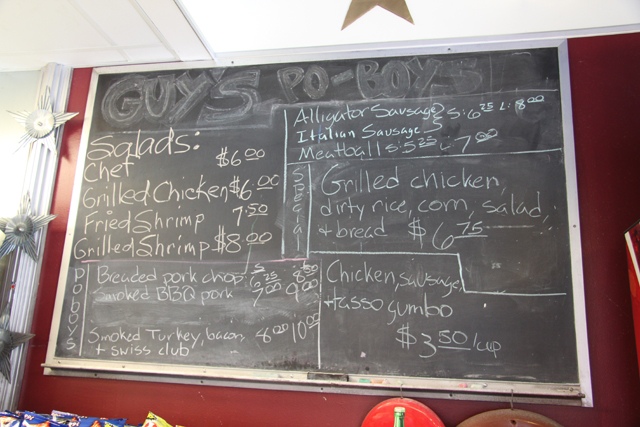 GUY'S PO-BOYS
Salads:
Chef $6.00
Grilled Chicken $6.00
Fried Shrimp 7.50
Grilled Shrimp $8.00
Alligator Sausage
Italian Sausage } S: 6.25 L: 8.00
Meatball S: 5.25 L: 7.00
Special
Grilled chicken,
dirty rice, corn, salad,
+ bread $6.75
Poboys
Breaded pork chop
Smoked BBQ pork 7.00 9.00
Smoked Turkey, bacon, 8.00 10.00
+ swiss club
Chicken, sausage,
+ tasso gumbo
$3.50/cup